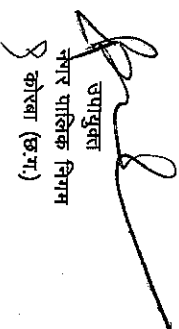 उपायुक्त
नगर पालिक निगम
कोरबा (छ.ग.)